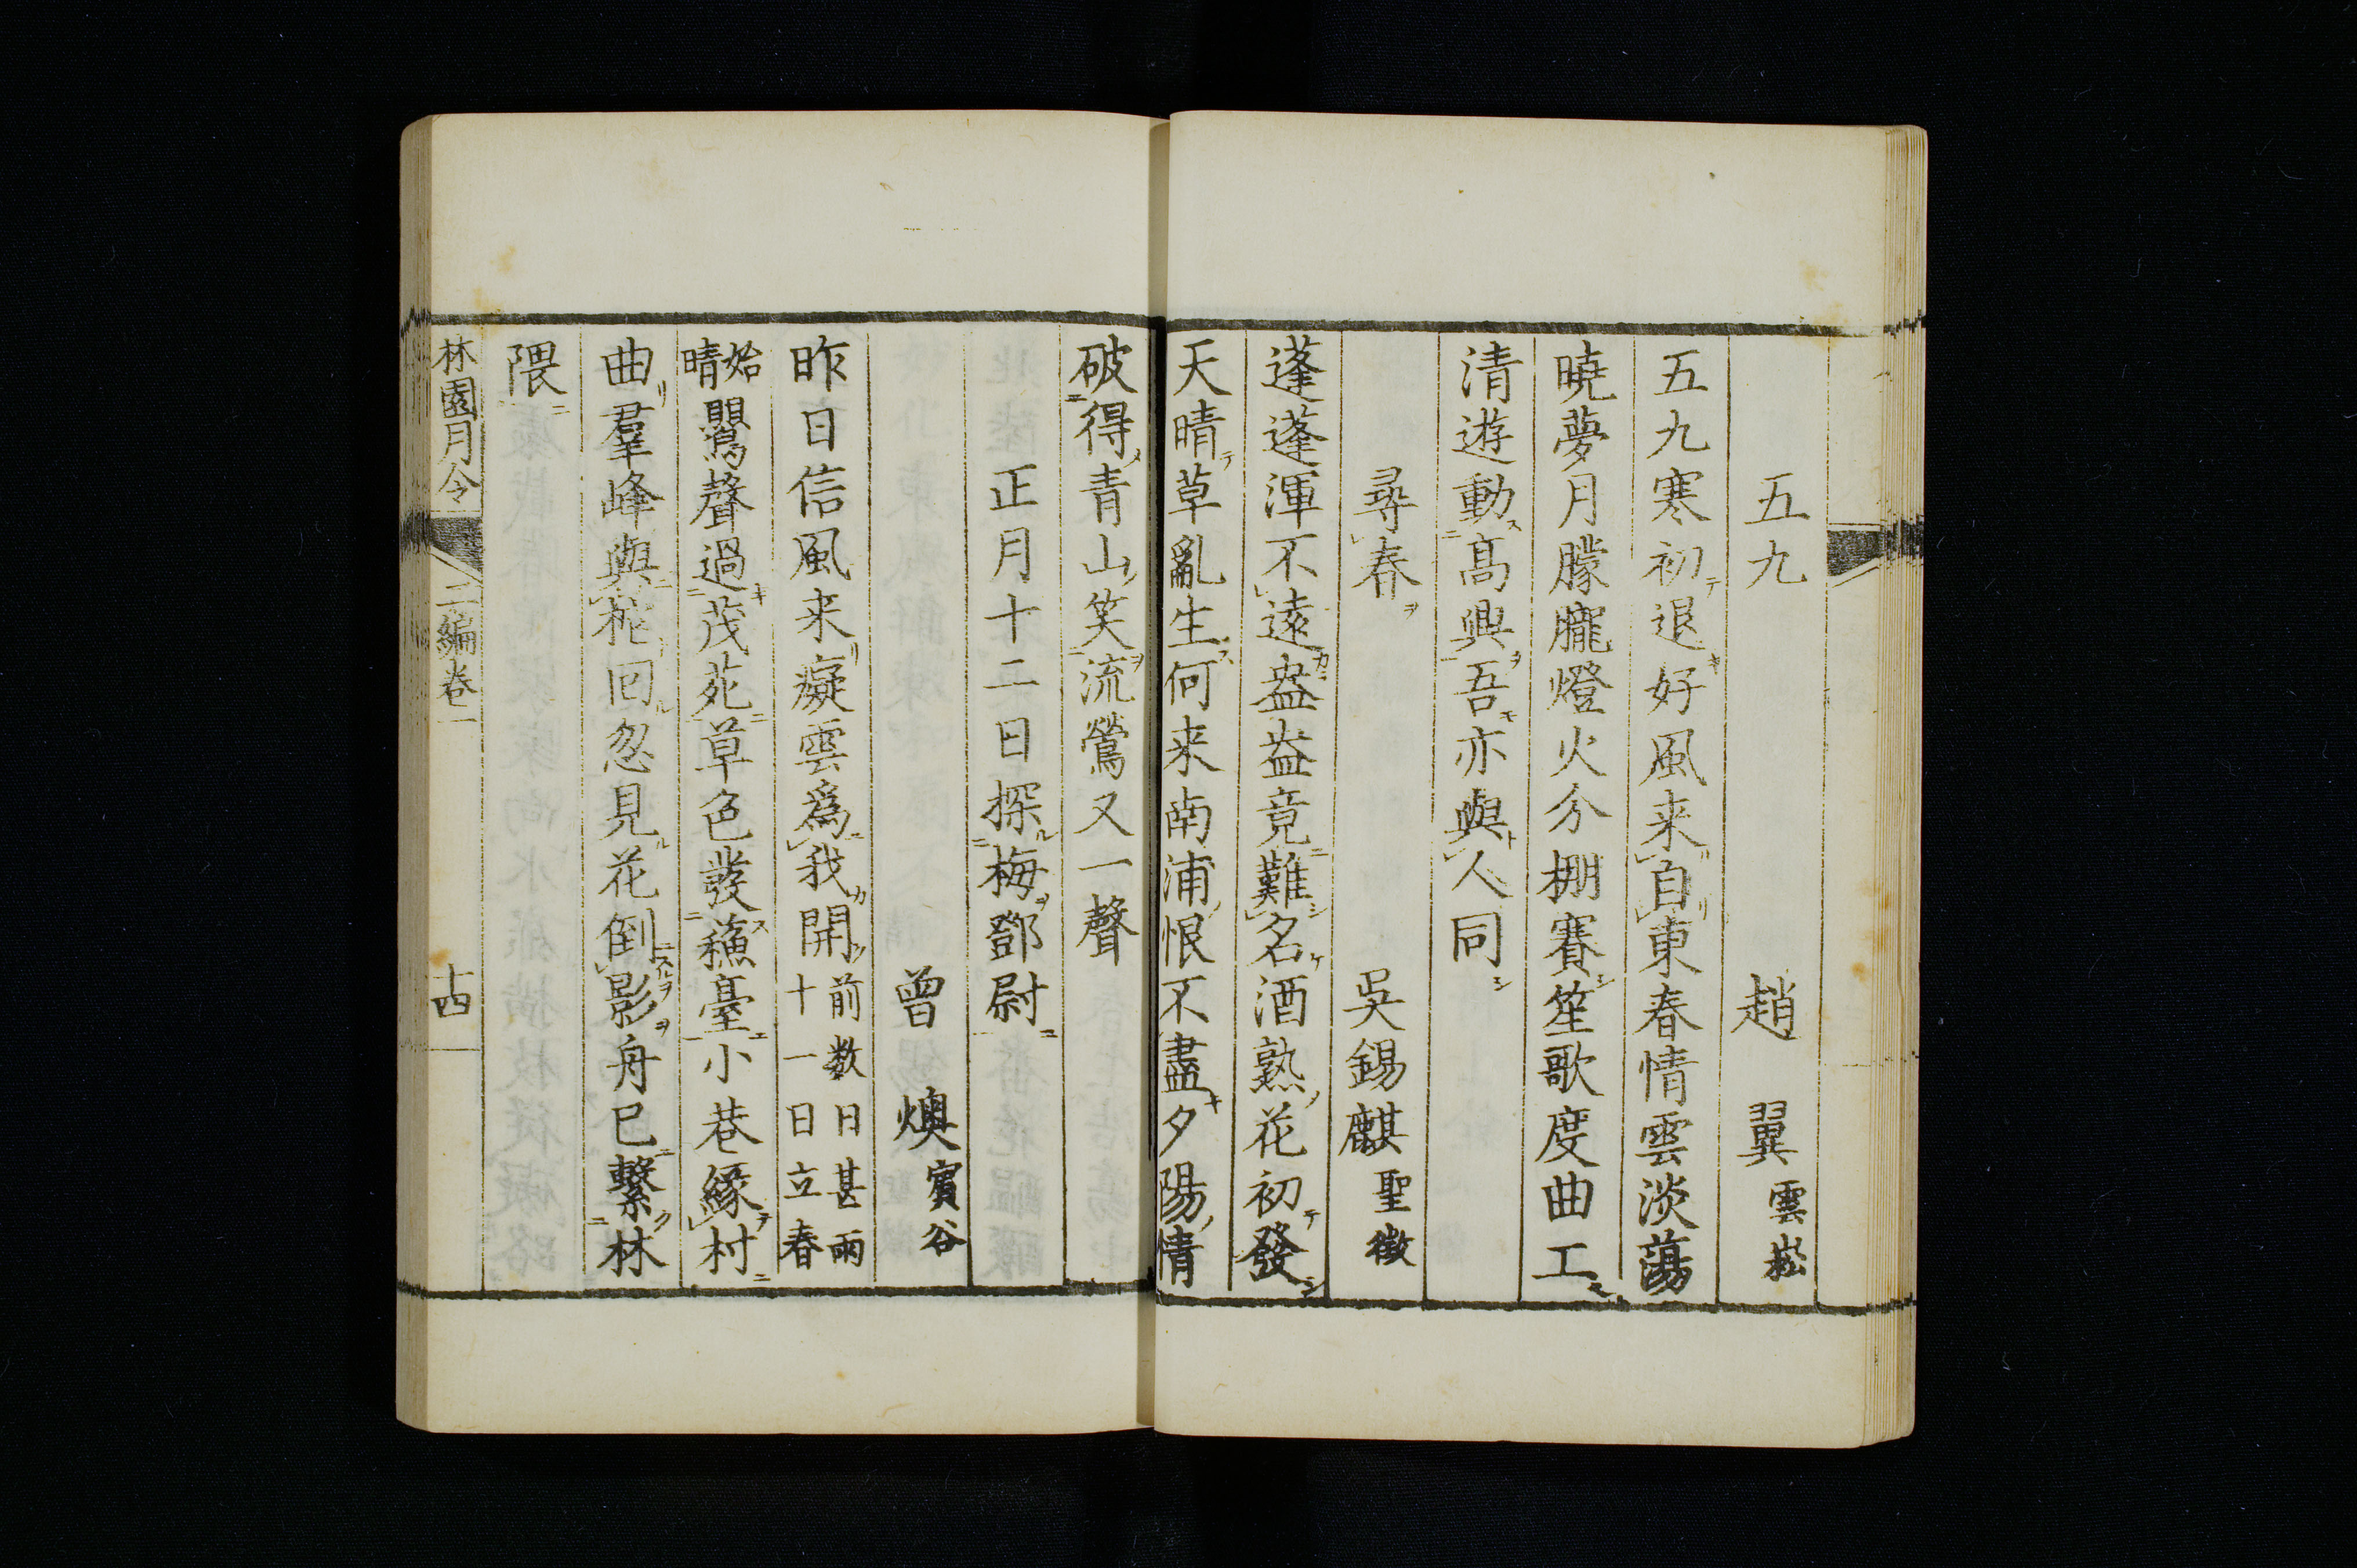 五九　趙　翼雲崧
五九寒初退好風来自東春情雲淡蕩
暁夢月朦朧燈火分棚賽笙歌度曲工
清遊動髙興吾亦與人同
尋春　吳錫麒聖徴
蓬蓬渾不遠盎盎竟難名酒熟花初發
天晴草亂生何来南浦恨不盡夕陽情
破得青山笑流鶯又一聲
正月十二日探梅鄧尉
曾　燠賓谷
昨日信風来癡雲爲我開前数日甚雨十一日立春
始晴鸎聲過茂苑草色發蘓臺小巷緣村
曲羣峰與柁回忽見花倒影舟已繫林
隈
林園月令　二編卷一　十四